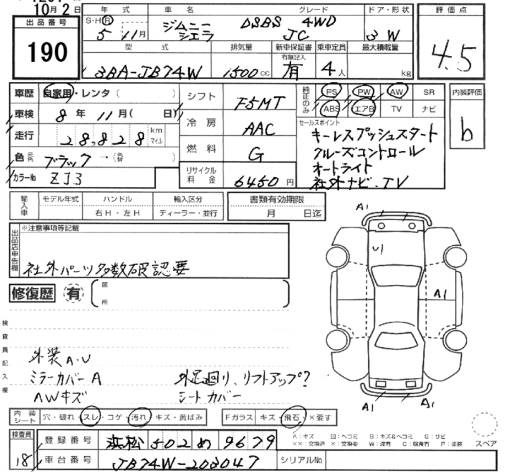 10月2日
出品番号 年式 車名 グレード ドア・形状 評価点
190
S・H・R 5年 11月 ジムニーシエラ DSBS 4WD JC 3 W
4.5
型式 排気量 新車保証書 有償記入 乗車定員 最大積載量
3BA-JB74W 1500cc 有 4人 kg
車歴 自家用・レンタ( )
シフト F5MT
純正品のみ PS PW AW SR
ABS エアB TV ナビ
内装評価 b
車検 8年 11月( 日)
冷房 AAC
セールスポイント
キーレスプッシュスタート
クルーズコントロール
オートライト
社外ナビ・TV
走行 28,828 km マイル
燃料 G
色 ブラック→
カラーNo ZJ3
リサイクル料金 6450円
輸入車 モデル年式 ハンドル 輸入区分 書類有効期限
右H・左H ディーラー・並行 月 日迄
出品店申告欄 ※注意事項等記載
社外パーツ多数確認要
修復歴 有 箇所
検査員記入欄
外装A.U
ミラーカバーA 外足廻り、リフトアップ?
AWキズ シートカバー
A1 A1
U1
A1 A1
A1 A1
内装シート 穴・破れ・スレ・コゲ・汚れ・キズ・黄ばみ Fガラス キズ・飛石・×要す
スペア
検査員 18
登録番号 浜松 502 め 9679
車台番号 JB74W-203047 シリアルNo